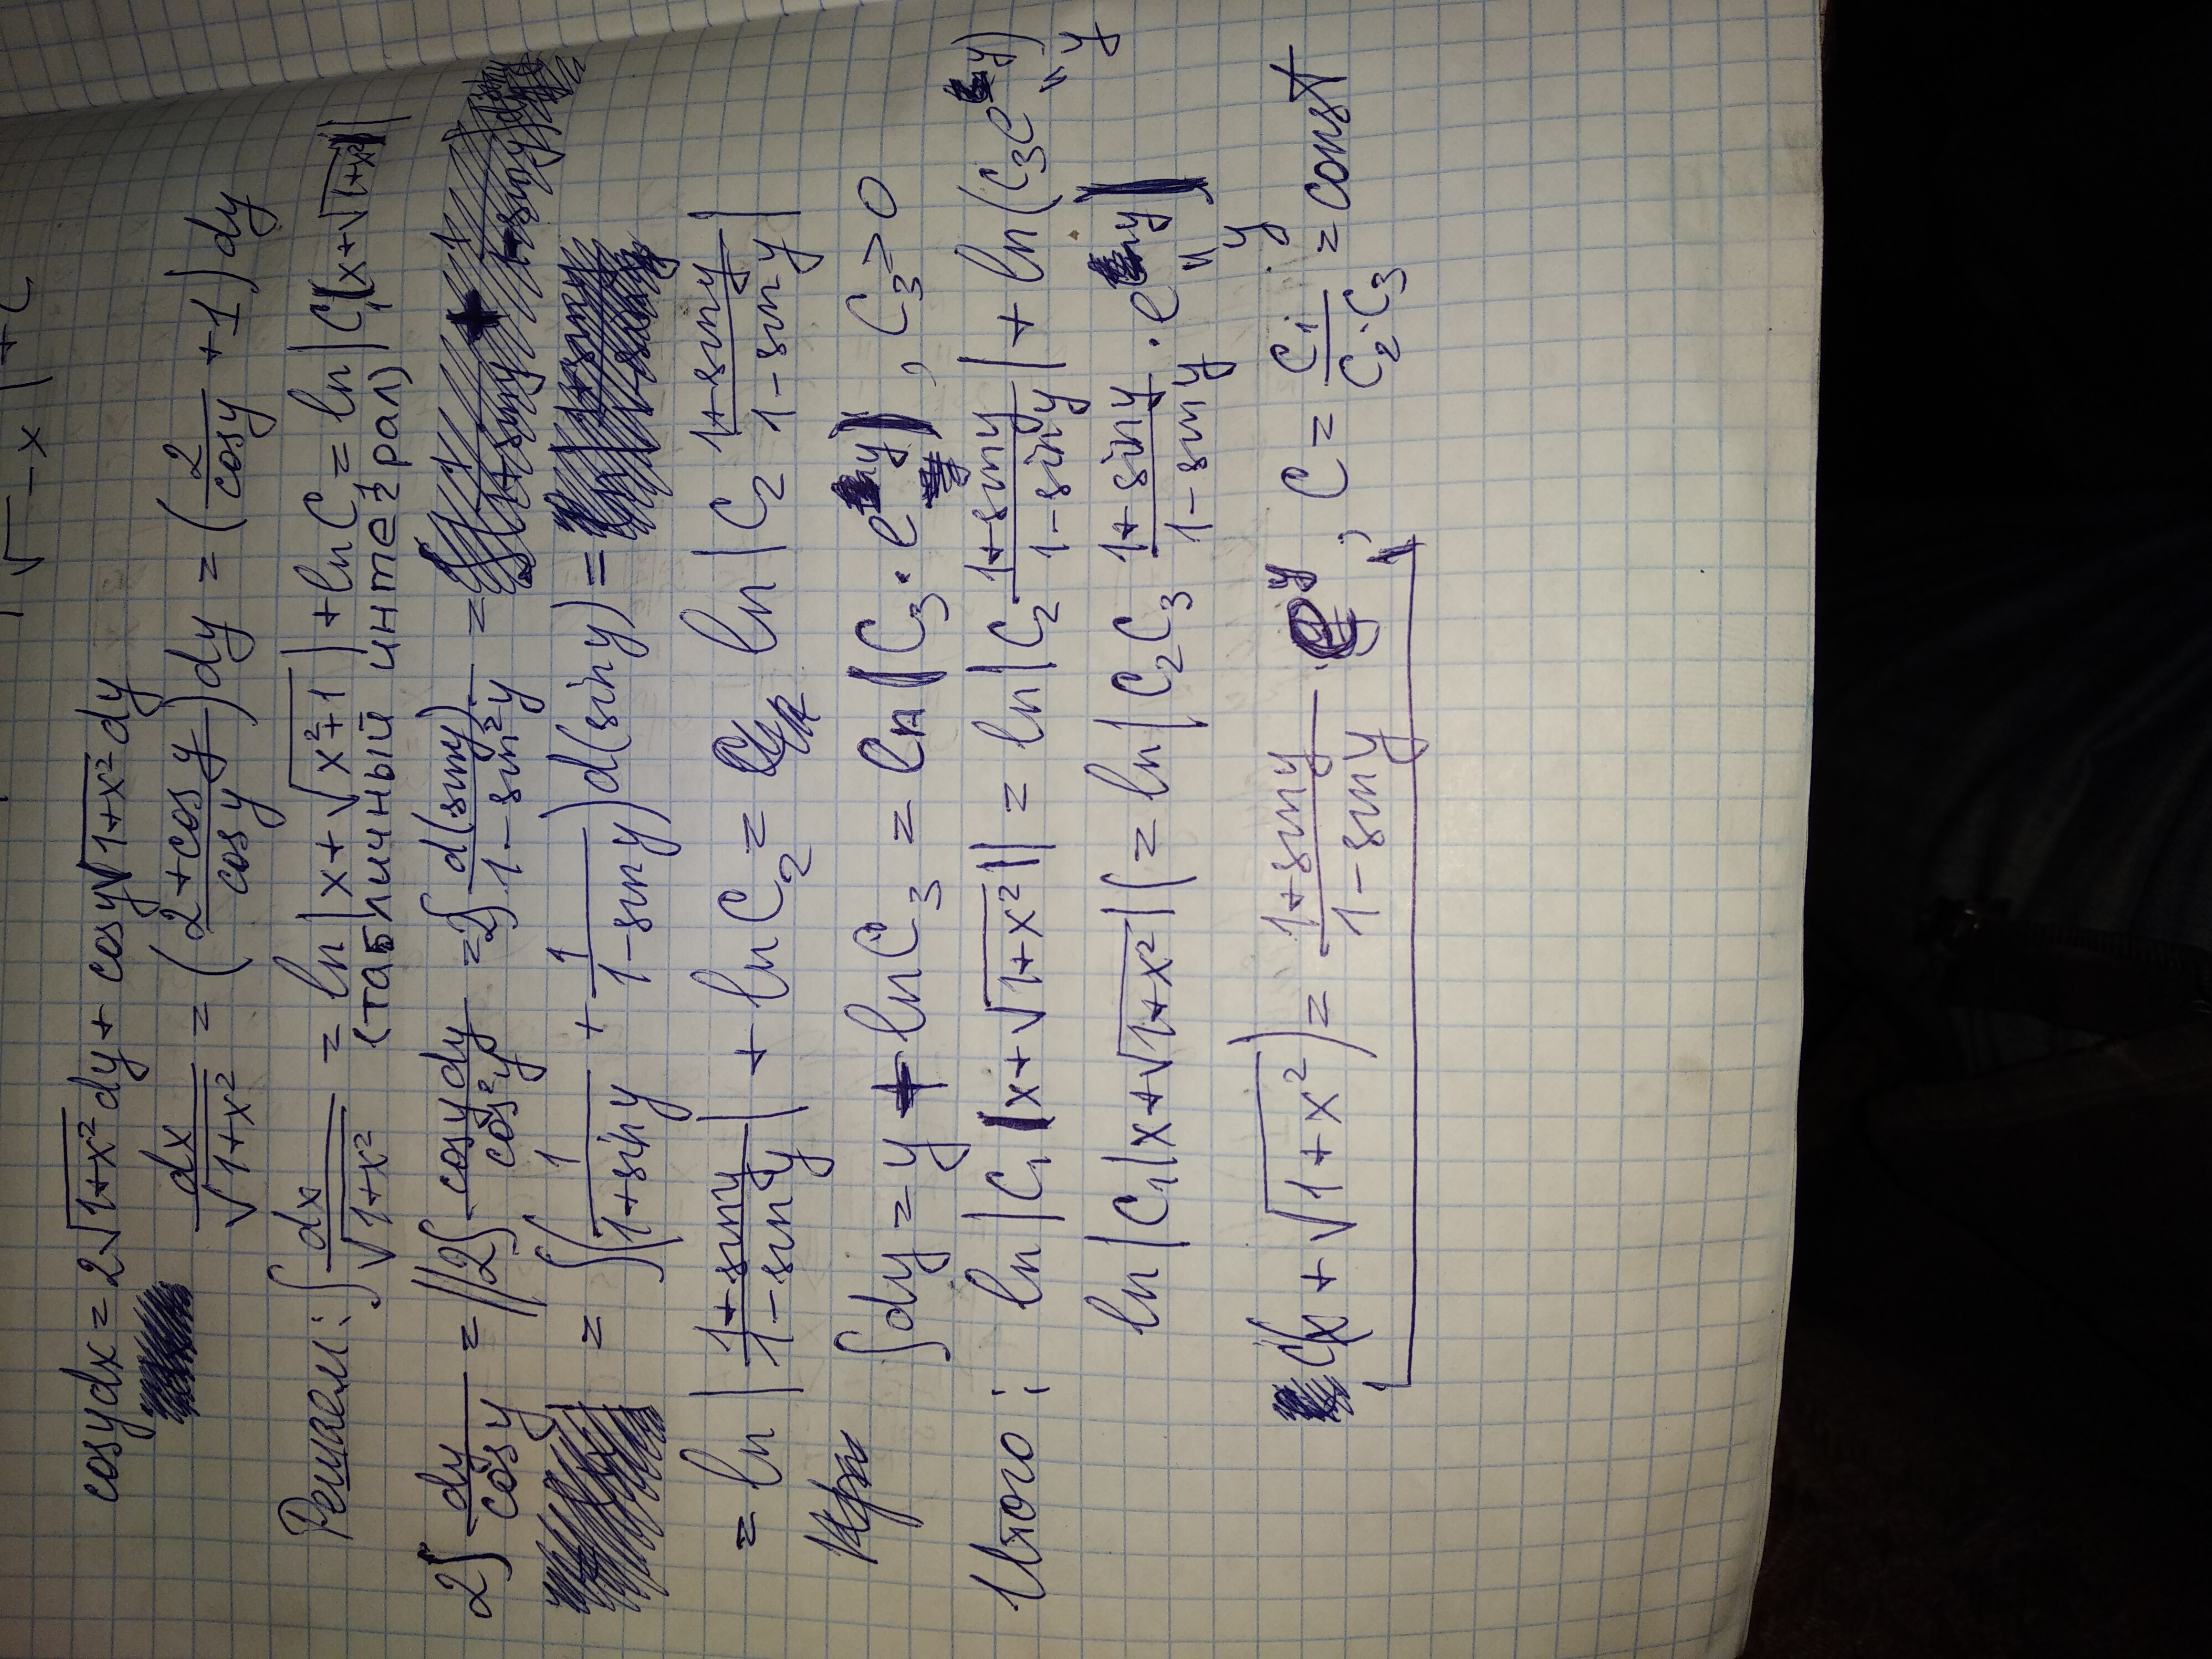 √ - x | + C
cosydx = 2√1+x² dy + cosy√1+x² dy
dx/√1+x² = (2+cosy/cosy)dy = (2/cosy + 1)dy
Решаем: ∫dx/√1+x² = ln|x+√x²+1| + lnC = ln|C₁(x+√1+x²)|
(табличный интеграл)
2∫dy/cosy = ||2∫cosydy/cos²y = 2∫d(siny)/1-sin²y =
= ∫(1/1+siny + 1/1-siny)d(siny) =
= ln|1+siny/1-siny| + lnC₂ = ln|C₂ 1+siny/1-siny|
∫dy = y + lnC₃ = ln(C₃·e^y), C₃>0
Итого: ln|C₁(x+√1+x²)| = ln|C₂·1+siny/1-siny| + ln(C₃e^y)
ln|C₁|x+√1+x²|| = ln|C₂C₃ 1+siny/1-siny · e^y|
C(x+√1+x²) = 1+siny/1-siny · e^y, C = C₁/C₂·C₃ = const